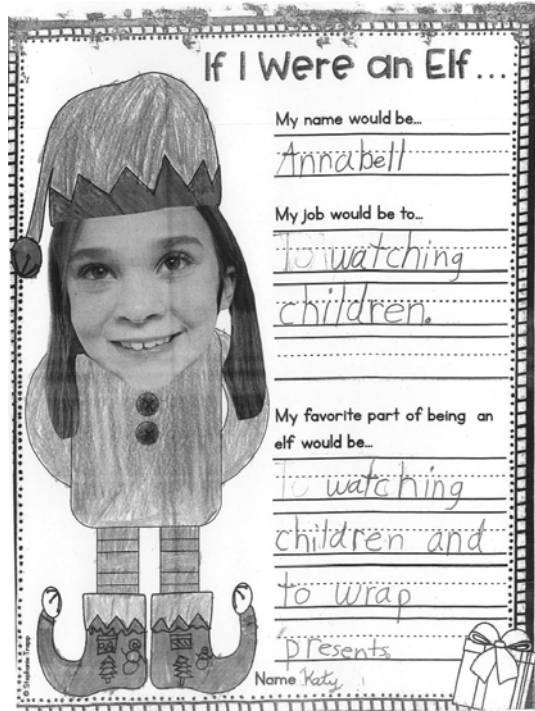 If I Were an Elf...
My name would be...
Annabell
My job would be to...
To watching
children.
My favorite part of being an
elf would be...
To watching
children and
to wrap
presents.
Name Katy
© Stephanie Trapp